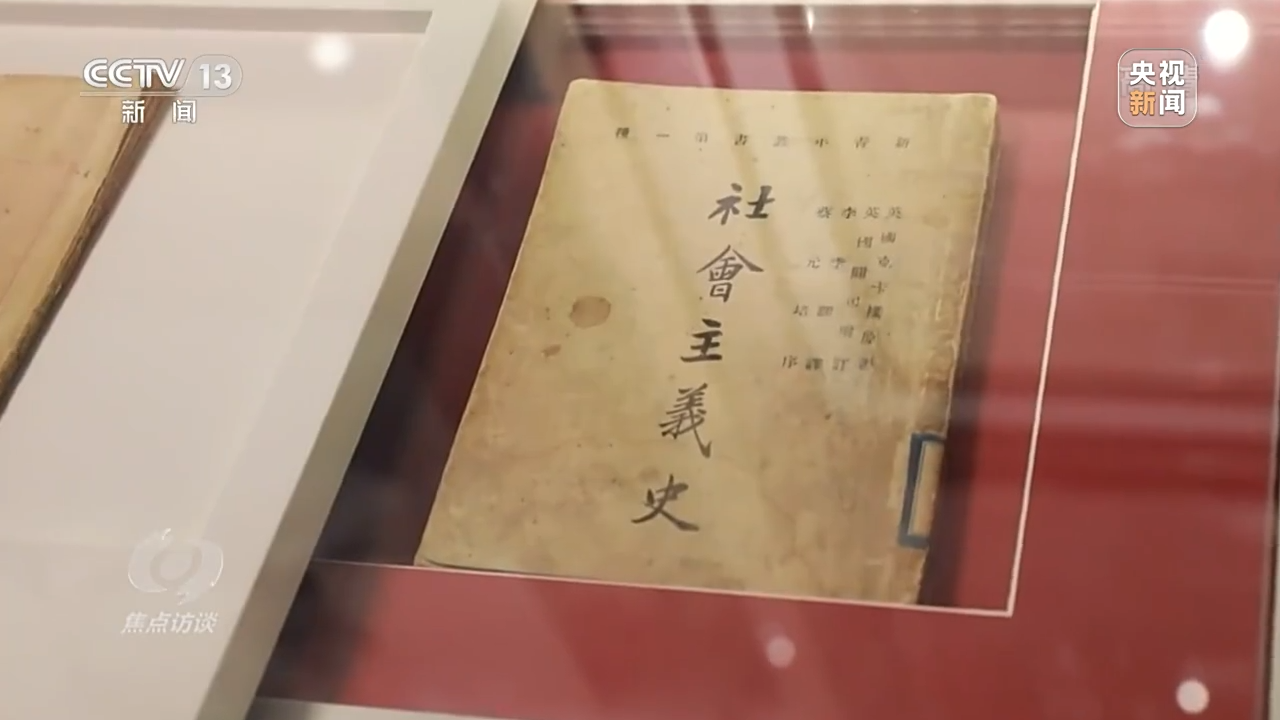 CCTV 13
新闻
央视
新闻
新青年叢書第一種
英國克卡樸
英國 司增訂
李季翻譯
蔡元培序
社會主義史
焦点访谈